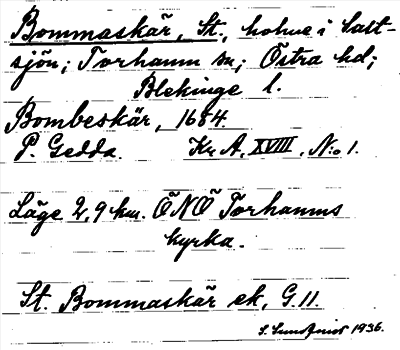 Bommaskär, St., holme i Salt-
sjön; Torhamn sn; Östra hd;
Blekinge l.
Bombeskär, 1684.
P. Gedda. Kr. A. XVIII. N:o 1.
Läge 2,9 km. ÖNÖ Torhamns
kyrka.
St. Bommaskär ek, G.11.
S. Sundqvist 1936.